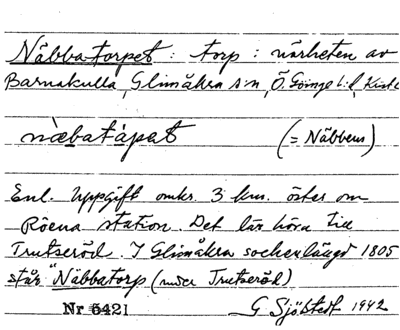 Näbbatorpet : torp : närheten av
Barnakulla, Glimåkra s:n, Ö. Göinge h:d, Krist
næbatåpet (= Näbbens)
Enl. uppgift omkr. 3 km. öster om
Röena station. Det lär höra till
Trutseröd. I Glimåkra sockenlängd 1805
står "Näbbatorp (under Trutseröd)
Nr 6421 G Sjöstedt 1942